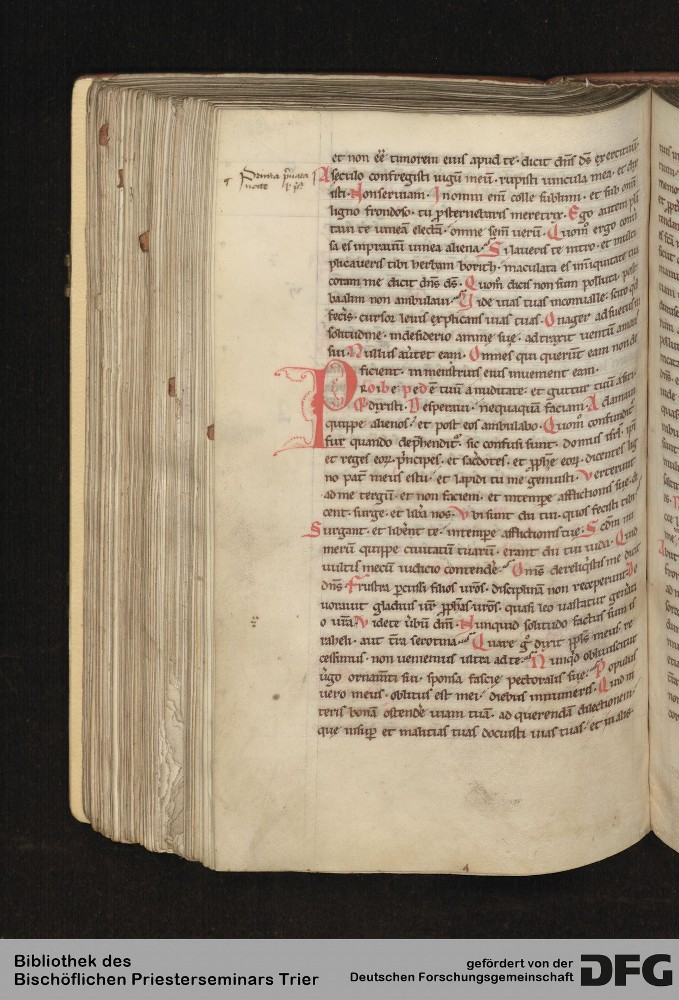 et non eē timorem eius apud te· dicit dn̄s ds̄ exercituū·
A seculo confregisti iugū meū· rupisti uincula mea· et dix
isti· Non seruiam· In omni enī colle sublimi· et sub omi
ligno frondoso· tu ꝓsternebaris meretrix· Ego autem plā
taui te uineam electā· omne sem̄ uerū· Quom̄ ergo conu
sa es in prauū uinea aliena· Si laueris te nitro· et multi
plicaueris tibi herbam borith· maculata es in iniquitate tua
coram me dicit dn̄s ds̄· Quom̄ dicis non sum polluta· post
baalim non ambulaui· Vide uias tuas in conualle· scito qd̄
fecis· cursor leuis explicans uias tuas· Onager adsuetus in
solitudine· in desiderio anime sue· adtraxit uentū amoris
sui· Nullus au͛tet eam· Omnes qui querūt eam non de
ficient· in menstruis eius inuenient eam·
Proibe pedē tuū a nuditate· et guttur tuū a siti·
Et dixisti· Desperaui· nequaquā faciam· Adamaui
quippe alienos· et post eos ambulabo· Quom̄ confundit᷑
fur quando dep̄hendit᷑· sic confusi sunt· domus isrl̄· ipsi
et reges eoꝝ· p̄ncipes· et sac͛dotes· et ꝓphe eoꝝ· dicentes lig
no pat͛ meus es tu· et lapidi tu me genuisti· Verterunt
ad me tergū· et non faciem· et in tempe afflictionis sue· di
cent· surge· et lib͛a nos· Vbi sunt dii tui· quos fecisti tibi·
Surgant· et lib͛ent te· in tempe afflictionis tue· Scdm̄ nu
merū quippe ciuitatū tuarū· erant dii tui iuda· Quid
uultis mecū iudicio contende͛· Om̄s dereliq̇stis me dicit
dn̄s· Frustra p̱cussi filios uros· disciplinā non receperunt· De
uorauit gladius ur̄· ꝓphas uros· quasi leo uastator gen͛ati
o ur̄a· Videte u͛bū dn̄i· Nunquid solitudo factus sum is
raheli· aut t͛ra serotina· Quare g̊ dixit ppls̄ meus· re
cessimus· non ueniemus ultra ad te· Nunqd̄ obliuiscitur
u͛go ornam̄ti sui· sponsa fascie pectoralis sue· Populus
uero meus· oblitus est mei· diebus innumeris· Quid ni
teris bonā ostende͛ uiam tuā· ad querendā dilectionem·
que insup̱ et malitias tuas docuisti uias tuas· et in alis·
Bibliothek des
Bischöflichen Priesterseminars Trier
gefördert von der
Deutschen Forschungsgemeinschaft
DFG